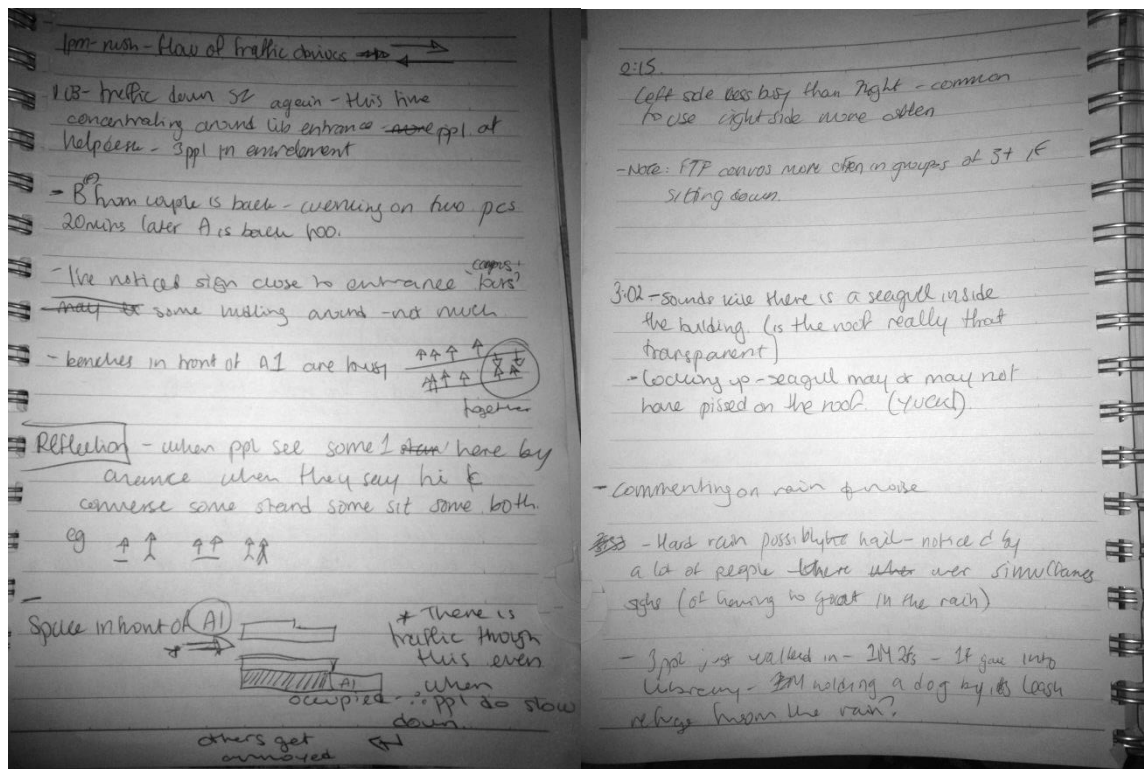 1pm - rush - flow of traffic obvious
traffic down S2 again - this time
concentrating around lib entrance ppl at
helpdesk - 3ppl in enrolement
- B from couple is back - working on two pcs
20mins later A is back too.
- I've noticed sign close to entrance "campus tours"
some milling around - not much
- benches in front of A1 are busy
together
Reflection - when ppl see some1 here by
chance when they say hi &
converse some stand some sit some both.
eg
Space in front of A1
* There is
traffic though
this even
A1
when
occupied ppl do slow
down.
others get
annoyed
2:15.
Left side less busy than right - common
to use right side more often
- Note: FTF convos more often in groups of 3+ if
sitting down.
3:02 - sounds like there is a seagull inside
the building. (is the roof really that
transparent)
- Looking up - seagul may or may not
have pissed on the roof. (YUCK!).
- Commenting on rain & noise
- Hard rain possibly hail - noticed by
a lot of people
sighs (of having to go out in the rain)
- 3ppl just walked in - 1M 2fs - 1f gone into
library - 1M holding a dog by its leash
refuge from the rain?